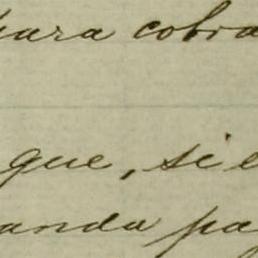 para cobra
que, si e
anda pa